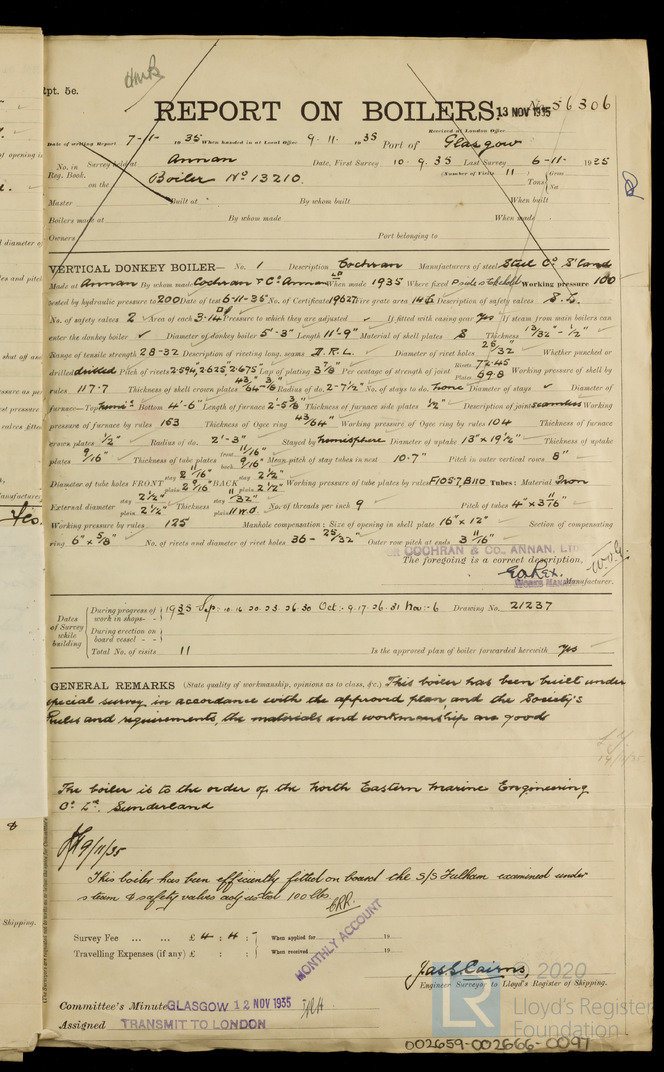 Rpt. 5e.
REPORT ON BOILERS.
13 NOV 1935 No. 56306
Received at London Office
Date of writing Report 7-11- 1935 When handed in at Local Office 9.11. 1935 Port of Glasgow
No. in Survey held at Annan Date, First Survey 10.9.35 Last Survey 6-11- 1935
Reg. Book. (Number of Visits 11)
on the Boiler No 13210. Tons Gross Net
Master Built at By whom built When built
Boilers made at By whom made When made
Owners Port belonging to
VERTICAL DONKEY BOILER— No. 1 Description Cochran Manufacturers of steel Steel Co Scotland
Made at Annan By whom made Cochran & Co Annan Ld When made 1935 Where fixed Working pressure 100
tested by hydraulic pressure to 200 Date of test 6-11-35 No. of Certificate 19627 Fire grate area Description of safety valves S.L.
No. of safety valves 2 Area of each 3.14 Pressure to which they are adjusted If fitted with casing gear yes If steam from main boilers can
enter the donkey boiler Diameter of donkey boiler 5'-3" Length 11'-9" Material of shell plates S Thickness 13/32" - 1/2"
Range of tensile strength 28-32 Description of riveting long. seams D.R.L. Diameter of rivet holes 25/32" Whether punched or
drilled drilled Pitch of rivets 2.594, 2.625, 2.675 Lap of plating 3 7/8" Per centage of strength of joint Rivets 72.45 Plates 69.8 Working pressure of shell by
rules 117.7 Thickness of shell crown plates Radius of do. 2-7 1/2" No. of stays to do. none Diameter of stays Diameter of
furnace—Top Bottom 4'-6" Length of furnace 2'-5 3/8" Thickness of furnace side plates 1/2" Description of joint seamless Working
pressure of furnace by rules 163 Thickness of Ogee ring 43/64" Working pressure of Ogee ring by rules 104 Thickness of furnace
crown plates 1/2" Radius of do. 2'-3" Stayed by hemisphere Diameter of uptake 13" x 19 1/2" Thickness of uptake
plates 9/16" Thickness of tube plates front 11/16" back 9/16" Mean pitch of stay tubes in nest 10.7" Pitch in outer vertical rows 8"
Diameter of tube holes FRONT stay 2 11/16" plain 2 9/16" BACK stay 2 1/2" plain 2 1/2" Working pressure of tube plates by rules F105.7, B110 Tubes: Material Iron
External diameter stay 2 1/2" plain 2 1/2" Thickness stay 11/32" plain 11 W.G. No. of threads per inch 9 Pitch of tubes 4" x 3 11/16"
Working pressure by rules 125 Manhole compensation: Size of opening in shell plate 16" x 12" Section of compensating
ring 6" x 5/8" No. of rivets and diameter of rivet holes 36 - 25/32" Outer row pitch at ends 3 11/16"
COCHRAN & CO., ANNAN, LTD
The foregoing is a correct description,
Manufacturer.
Dates of Survey while building
During progress of work in shops - - 1935 Sep. 10.16.20.23.26.30 Oct. 9.17.26.31 Nov. 6 Drawing No. 21237
During erection on board vessel - -
Total No. of visits 11 Is the approved plan of boiler forwarded herewith yes
GENERAL REMARKS (State quality of workmanship, opinions as to class, &c.) This boiler has been built under
special survey in accordance with the approved plan, and the Society's
rules and requirements, the materials and workmanship are good
The boiler is to the order of the North Eastern Marine Engineering
Co. Ld. Sunderland
9/11/35
This boiler has been efficiently fitted on board the S/S Fulham examined under
steam & safety valves adjusted 100 lbs.
Survey Fee ... ... £ 4 : 4 : - When applied for 19
Travelling Expenses (if any) £ : : When received 19
MONTHLY ACCOUNT
Jas S Cairns,
Engineer Surveyor to Lloyd's Register of Shipping.
Committee's Minute GLASGOW 12 NOV 1935
Assigned TRANSMIT TO LONDON
© 2020
LR
Lloyd's Register
Foundation
002659-002666-0097
Shipping.